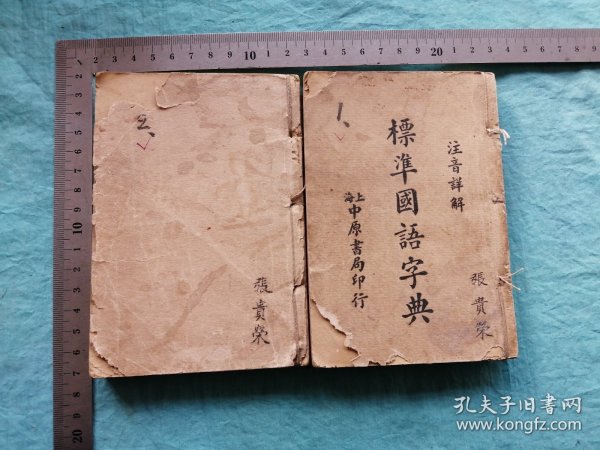 2、
張貴榮
1、
注音詳解
標準國語字典
上海
中原書局印行
張貴榮
孔夫子旧书网
www.kongfz.com